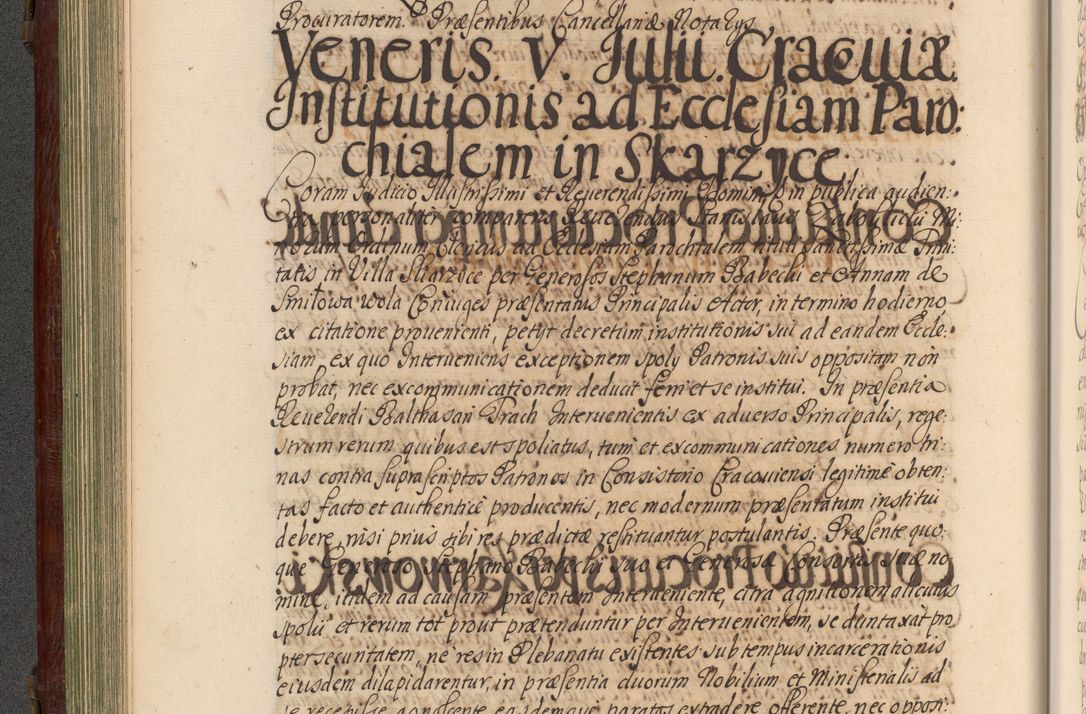 Procuratorem. Præsentibus Cancellariæ Notarijs
Veneris. V. Julii. Cracoviæ.
Institutionis ad Ecclesiam Paro:
chialem in Skarzyce.
Coram Judicio Illustrissimi et Reverendissimi Domini in publica audien:
tia personaliter comparens Stanislaus
norum Ordinum Clericus ad Ecclesiam Parochialem tituli Sanctissimæ Trini
tatis in Villa Skarzice per Generosos Stephanum Babecki et Annam de
Smiłowa wola Coniuges præsentatus Principalis Actor, in termino hodierno
ex citatione provenienti, petijt decretum institutionis sui ad eandem Eccle:
siam, ex quo Interveniens exceptionem spolij Patronis suis oppositam non
probat, nec excommunicationem deducat ferri et se institui. In præsentia
Reverendi Balthasari Trach Intervenientis ex adverso Principalis, rege:
strum rerum quibus est spoliatus, tum et excommunicationes numero tri:
nas contra suprascriptos Patronos in Consistorio Cracoviensi legitimè obten:
tas facto et authenticè producentis, nec modernum præsentatum institui
debere, nisi prius sibi res prædictæ restituantur postulantis. Præsente quo:
que Generoso Stephano Babecki suo et Generosæ Consortis suæ no
mine, itidem ad causam præsentem Interveniente, citra agnitionem alicuius
spolii et rerum tot prout prætenduntur per Intervenientem, se duntaxat pro
pter securitatem, ne res in Plebanatu existentes sub tempus incarcerationis
eiusdem dilapidarentur, in præsentia duorum Nobilium et Ministerialis ad
se recepisse agnoscente easdemque paratos extradere offerente, nec opposi: